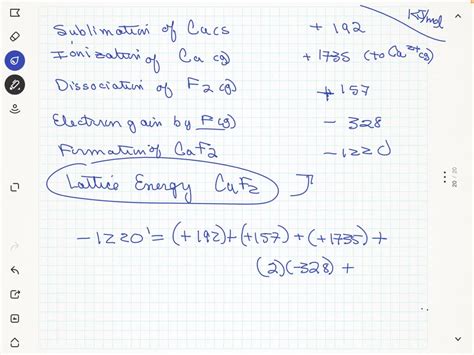 kJ/mol
Sublimation of Ca(s) + 192
Ionization of Ca (g) + 1735 (to Ca2+(g)
Dissociation of F2(g) + 157
Electron gain by F(g) - 328
Formation of CaF2 - 1220
Lattice Energy CaF2
-1220 = (+192)+(+157) + (+1735) +
(2)(-328) +
20 / 20